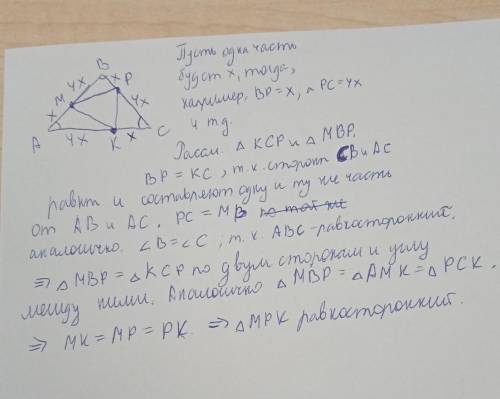 Пусть одна часть
будет x, тогда,
например, BP = x, а PC = 4x
и т.д.
B
4x x P
M 4x
x
A 4x K x C
Рассм. △ KCP и △ MBP.
BP = KC, т.к. стороны CB и AC
равны и составляют одну и ту же часть
от AB и AC. PC = MB
аналогично. ∠B = ∠C, т.к. ABC - равносторонний.
⇒ △ MBP = △ KCP по двум сторонам и углу
между ними. Аналогично △ MBP = △ AMK = △ PCK.
⇒ MK = MP = PK. ⇒ △ MPK равносторонний.